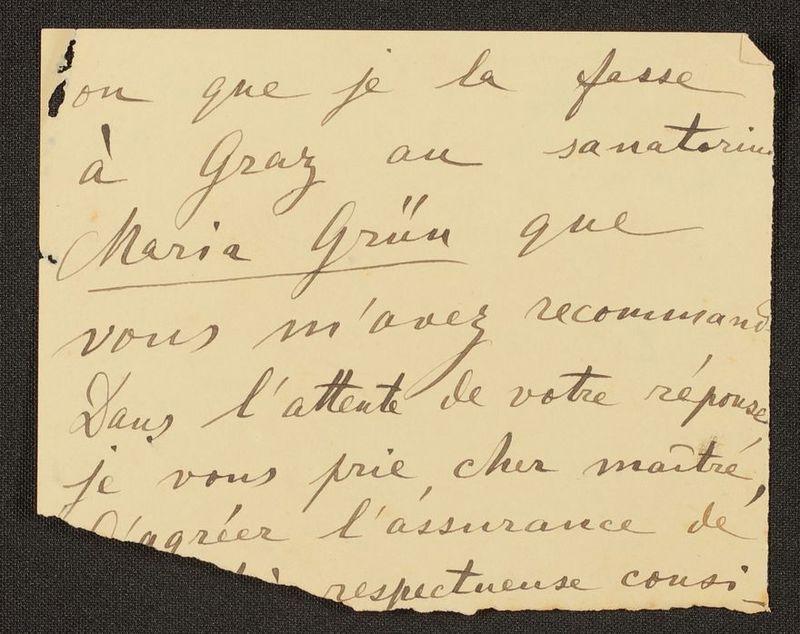 on que je la fasse
à Graz au sanatorium
Maria Grün que
vous m'avez recommandé
Dans l'attente de votre réponse
je vous prie, cher maîtré,
d'agréer l'assurance de
respectueuse consi-